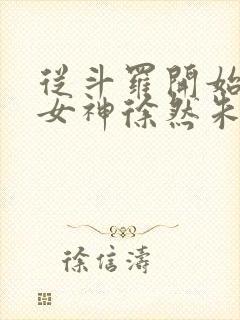 從斗羅開始
女神徐然朱
徐信濤